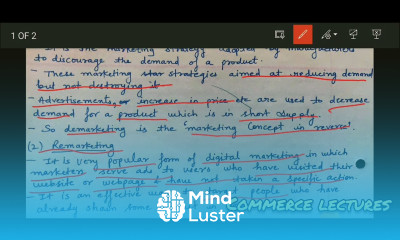 1 OF 2
It is the marketing strategy adopted by
to discourage the demand of a product.
- These marketing strategies aimed at reducing demand
but not destroying it.
- Advertisements, or increase in price etc are used to decrease
demand for a product which is in short supply.
- So demarketing is the "marketing concept in reverse"
(2) Remarketing
- It is very popular form of digital marketing in which
marketers serve ads to users who have visited their
website or webpage & have not taken a specific action.
- It is an effective people who have
already shown some
Mind
Luster
COMMERCE LECTURES